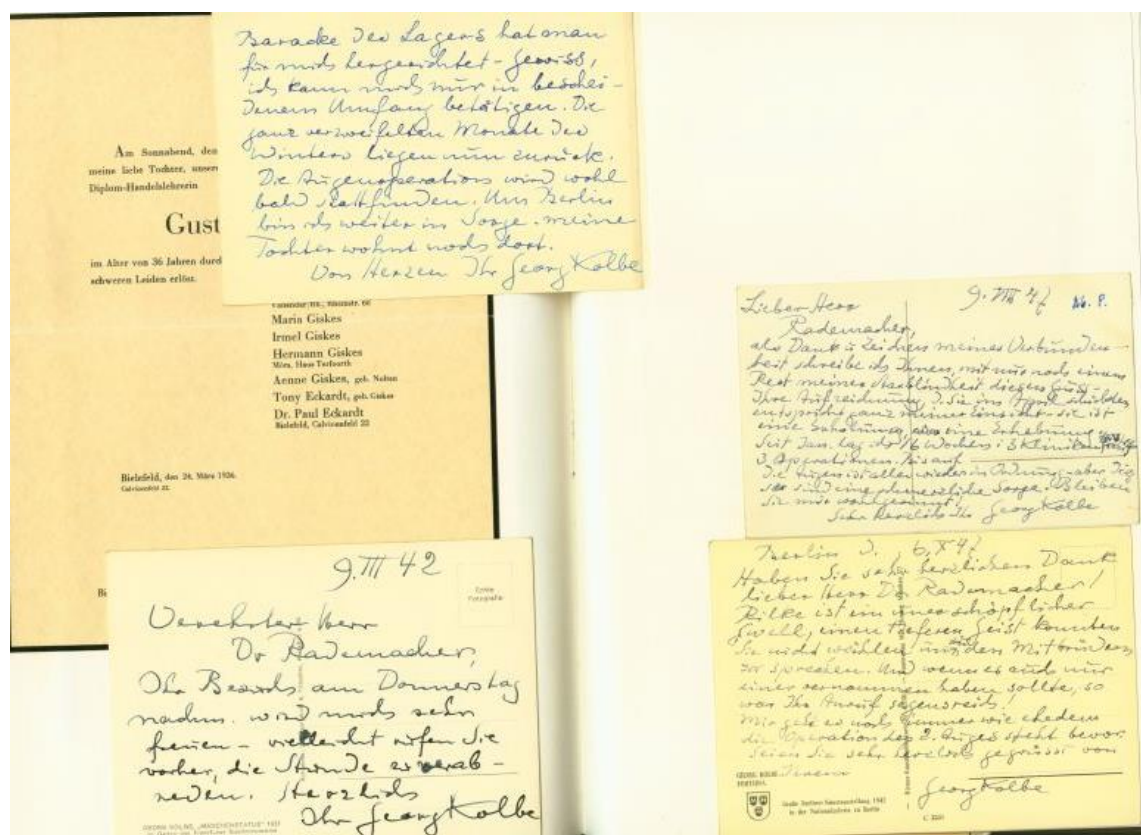 Am Sonnabend, den
meine liebe Tochter, unsere
Diplom-Handelslehrerin
Gust
im Alter von 36 Jahren durch
schweren Leiden erlöst.
Maria Giskes
Irmel Giskes
Hermann Giskes
Mörs, Haus Tervoorth
Aenne Giskes, geb. Nolten
Tony Eckardt, geb. Giskes
Dr. Paul Eckardt
Bielefeld, Calvinenfeld 22
Bielefeld, den 24. März 1936.
Calvinenfeld 22.
Bi
Baracke des Lagers hat man
für mich hergerichtet - Gewiss,
ich kann mich nur in beschei-
denem Umfang betätigen. Die
ganz verzweifelten Monate des
Winters liegen nun zurück.
Die Augenoperation wird wohl
bald stattfinden. Um Berlin
bin ich weiter in Sorge. meine
Tochter wohnt noch dort.
Von Herzen Ihr Georg Kolbe
9. III 42
Echte
Fotografie
Verehrter Herr
Dr Rademacher,
Ihr Besuch am Donnerstag
nachm. wird mich sehr
freuen - vielleicht rufen Sie
vorher, die Stunde zu verab-
reden. Herzlich
Ihr Georg Kolbe
GEORG KOLBE, "MÄDCHENSTATUE" 1937
9. VIII 47
Lieber Herr
Rademacher,
als Dank u Zeichen meiner Verbunden-
heit schreibe ich Ihnen, mit nur noch einem
Rest meiner diesen Gruss -
Ihre Aufzeichnung d. Sie im April schickten
entspricht ganz meiner Einsicht - sie ist
eine eine Erhebung
Seit Jan. lag ich 16 Wochen i 3 Kliniken
3 Operationen. Bis auf
die Augen ist alles wieder in Ordnung - aber
sind eine schmerzliche Sorge. Bleiben
Sie mir wohlgesinnt!
Sehr herzlich Ihr Georg Kolbe
Berlin 6. X 47
Haben Sie sehr herzlichen Dank
lieber Herr Dr. Rademacher!
Rilke ist ein unerschöpflicher
Quell, einen tieferen Geist konnten
Sie nicht wählen um zu den Mitbrüdern
zu sprechen. Und wenn es auch nur
einer vernommen haben sollte, so
war Ihr Anruf segensreich!
Mir geht es noch immer wie ehedem
die Operation des 2. Auges steht bevor
Seien Sie sehr herzlich gegrüsst von
Ihrem
Georg Kolbe
GEORG KOLBE
Große Berliner Kunstausstellung 1942
in der Nationalgalerie zu Berlin